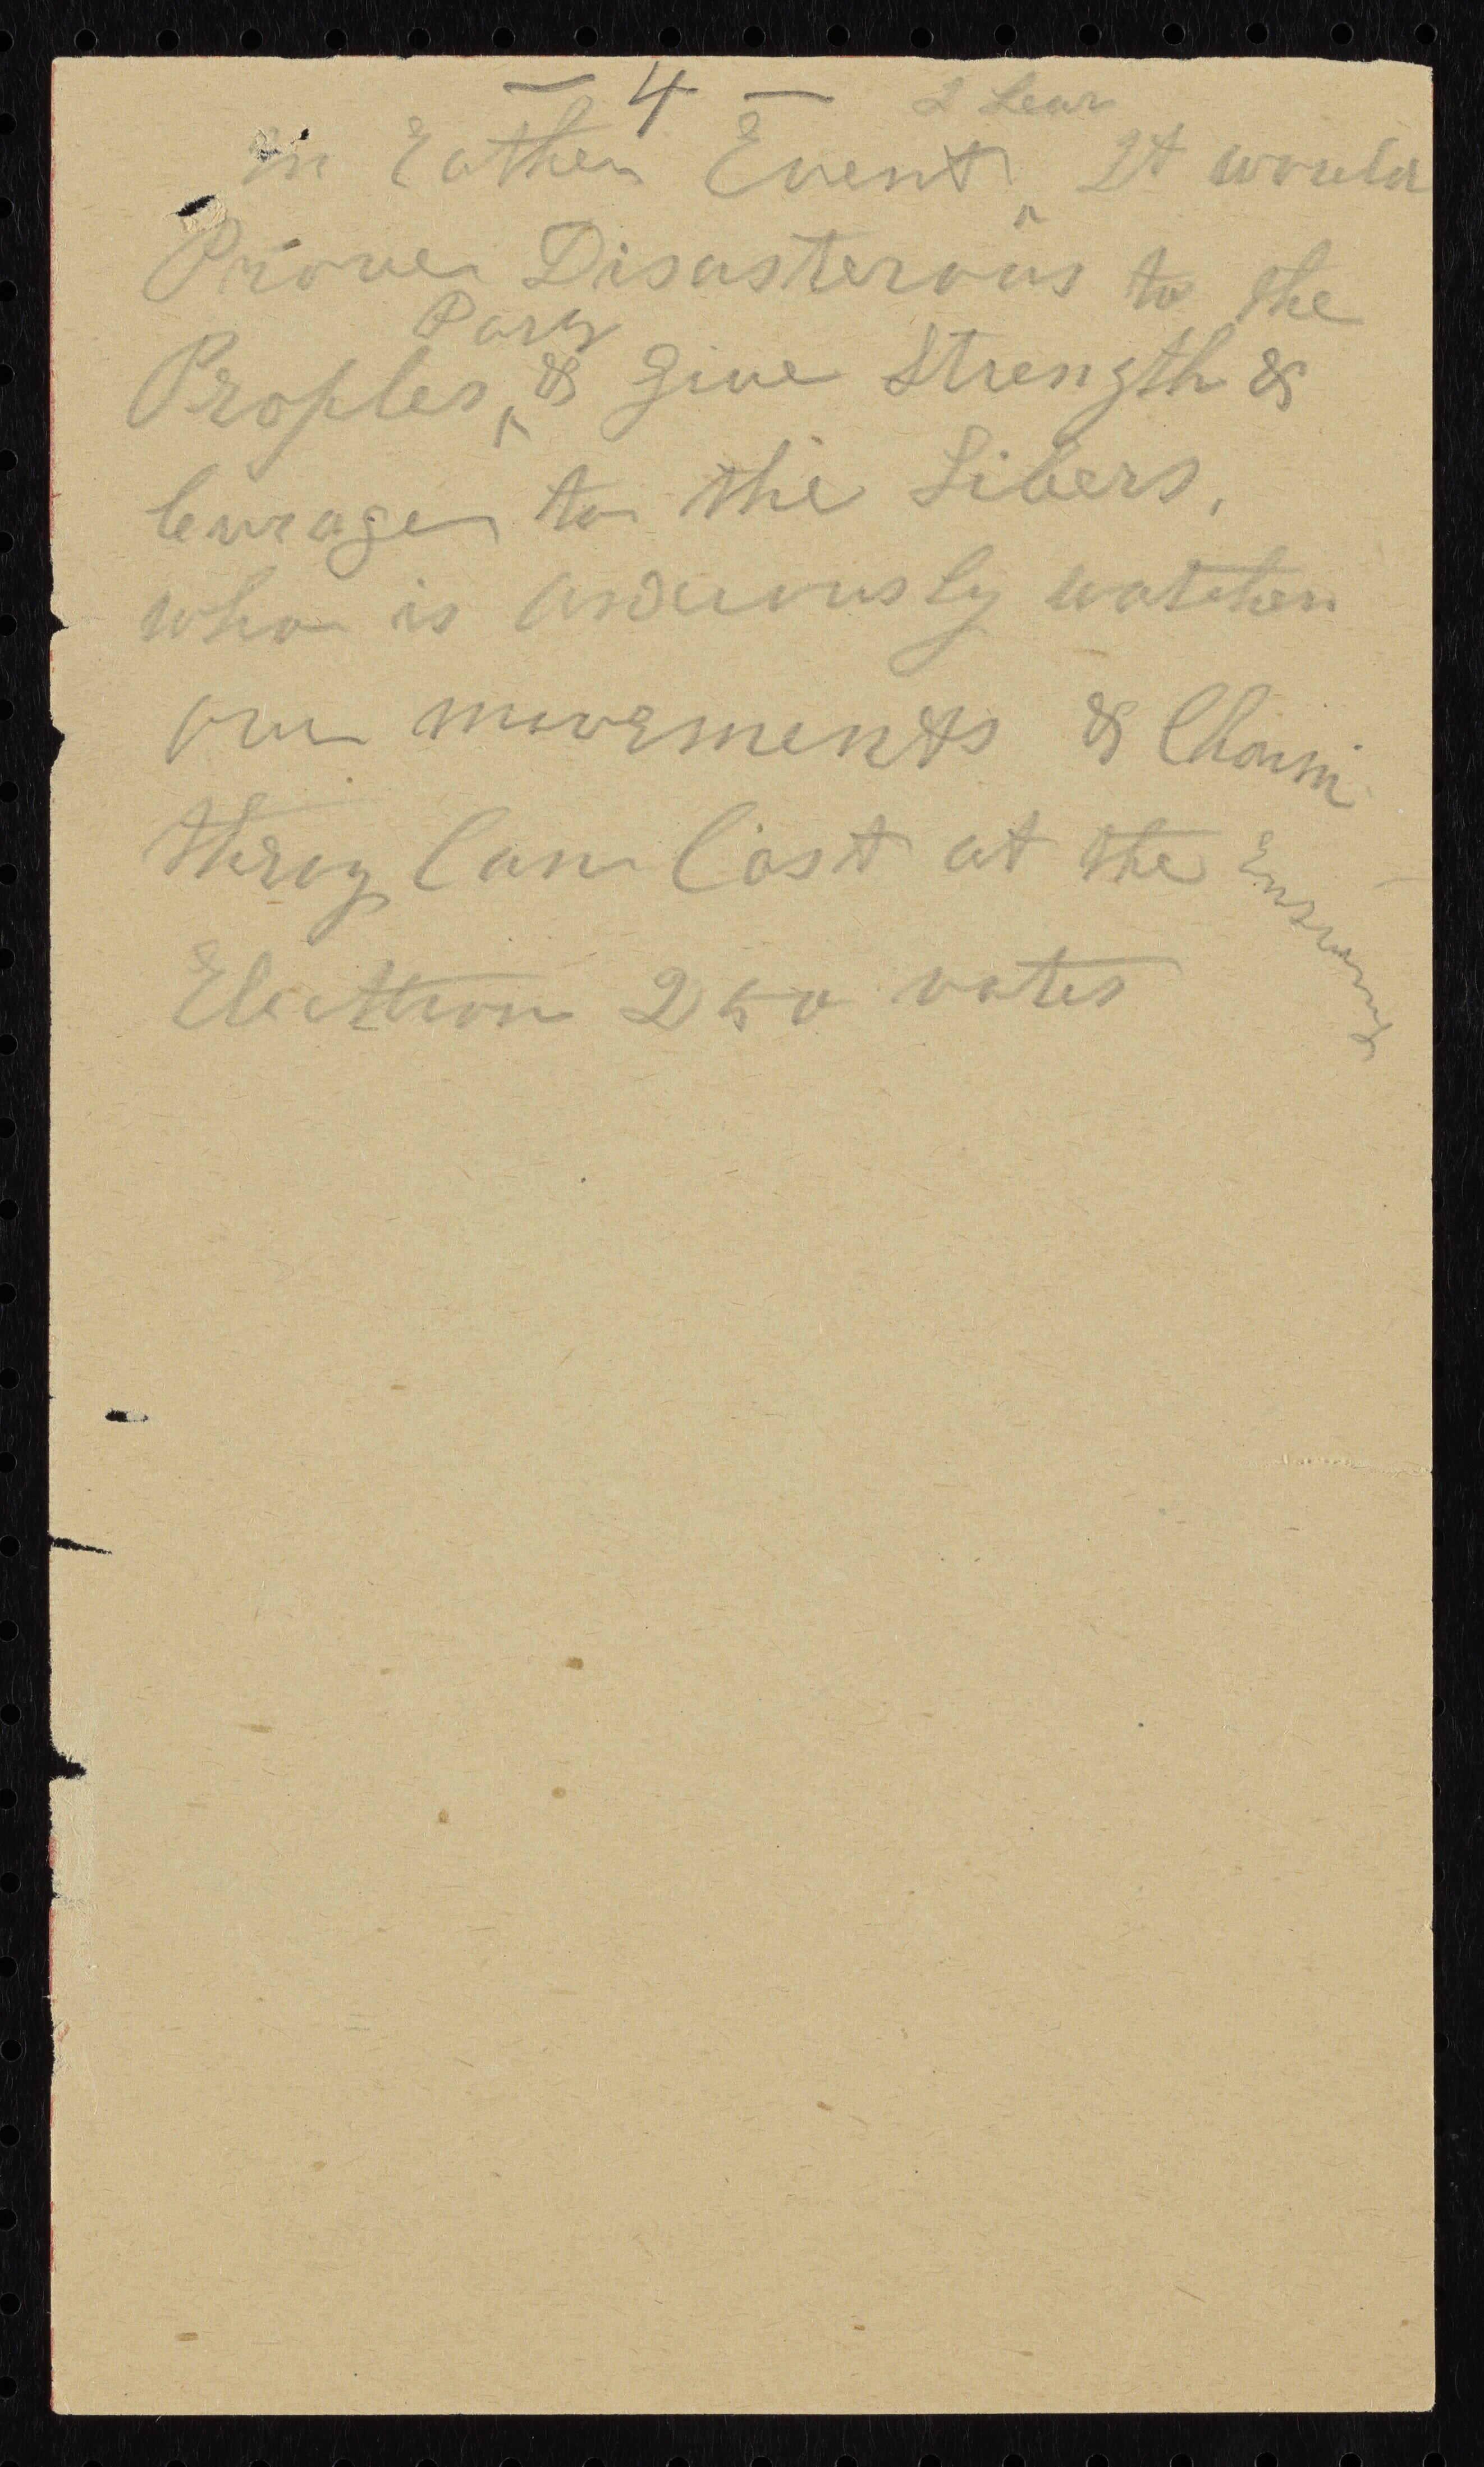 - 4 -
I fear
In Eather Event ^ It would
Prove Disasterous to the
Party
Peoples ^ & give Strength &
Courage to the Libers,
who is arduously watchen
our movements & Chaim
theray Can Cast at the Ensuing
Election 250 votes